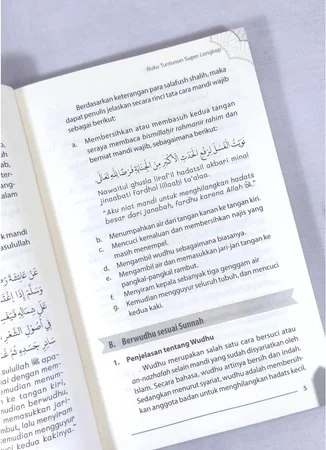 Buku Tuntunan Super Lengkap
Berdasarkan keterangan para salafush shalih, maka
dapat penulis jelaskan secara rinci tata cara mandi wajib
sebagai berikut:
a. Membersihkan atau membasuh kedua tangan
seraya membaca bismillahir rahmanir rahim dan
berniat mandi wajib, sebagaimana berikut:
نَوَيْتُ الْغُسْلَ لِرَفْعِ الْحَدَثِ الْأَكْبَرِ مِنَ الْجَنَابَةِ فَرْضًا لِلّٰهِ تَعَالَى
Nawaitul ghusla liraf'il hadatsil akbari minal
jinaabati fardhal lillaahi ta'alaa.
"Aku niat mandi untuk menghilangkan hadats
besar dari janabah, fardhu karena Allah ﷻ."
b. Menumpahkan air dari tangan kanan ke tangan kiri.
c. Mencuci kemaluan dan membersihkan najis yang
masih menempel.
d. Mengambil wudhu sebagaimana biasanya.
e. Mengambil air dan memasukkan jari-jari tangan ke
pangkal-pangkal rambut.
f. Menyiram kepala sebanyak tiga genggam air
g. Kemudian mengguyur seluruh tubuh, dan mencuci
kedua kaki.
B. Berwudhu sesuai Sunnah
1. Penjelasan tentang Wudhu
Wudhu merupakan salah satu cara bersuci atau
an-nazhafah selain mandi yang sudah disyariatkan oleh
Islam. Secara bahasa, wudhu artinya bersih dan indah.
Sedangkan menurut syariat, wudhu adalah membersih-
kan anggota badan untuk menghilangkan hadats kecil.
5
k mandi
asulullah
sulullah ﷺ apa-
ai dengan mem-
mudian menum-
n ke tangan kiri,
mudian berwudhu,
n memasukkan jari-
mbut, lalu menyiram
emudian mengguyur
uci kedua kakinya."